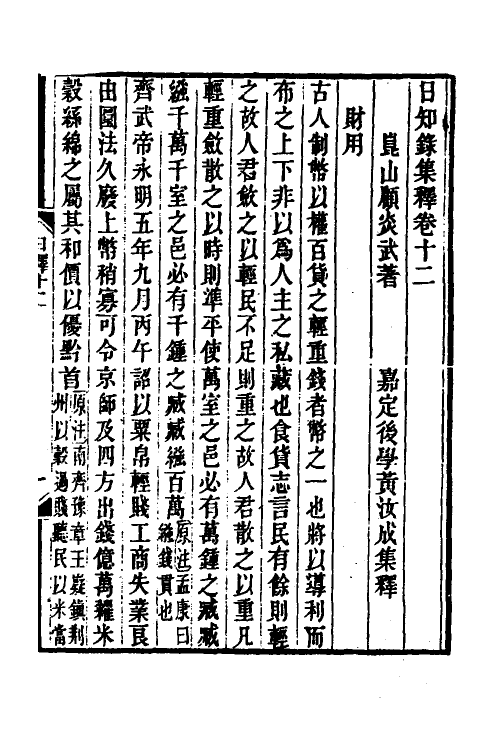 日知錄集釋卷十二
崑山顧炎武著 嘉定後學黃汝成集釋
財用
古人制幣以權百貨之輕重錢者幣之一也將以導利而
布之上下非以爲人主之私藏也食貨志言民有餘則輕
之故人君斂之以輕民不足則重之故人君散之以重凡
輕重斂散之以時則準平使萬室之邑必有萬鍾之臧臧
繈千萬千室之邑必有千鍾之臧臧繈百萬原注孟康曰繈錢貫也
齊武帝永明五年九月丙午詔以粟帛輕賤工商失業良
由圜法久廢上幣稍寡可令京師及四方出錢億萬糴米
穀絲綿之屬其和價以優黔首原注南齊豫章王嶷鎮荆州以穀過賤聽民以米當
日釋十二
一